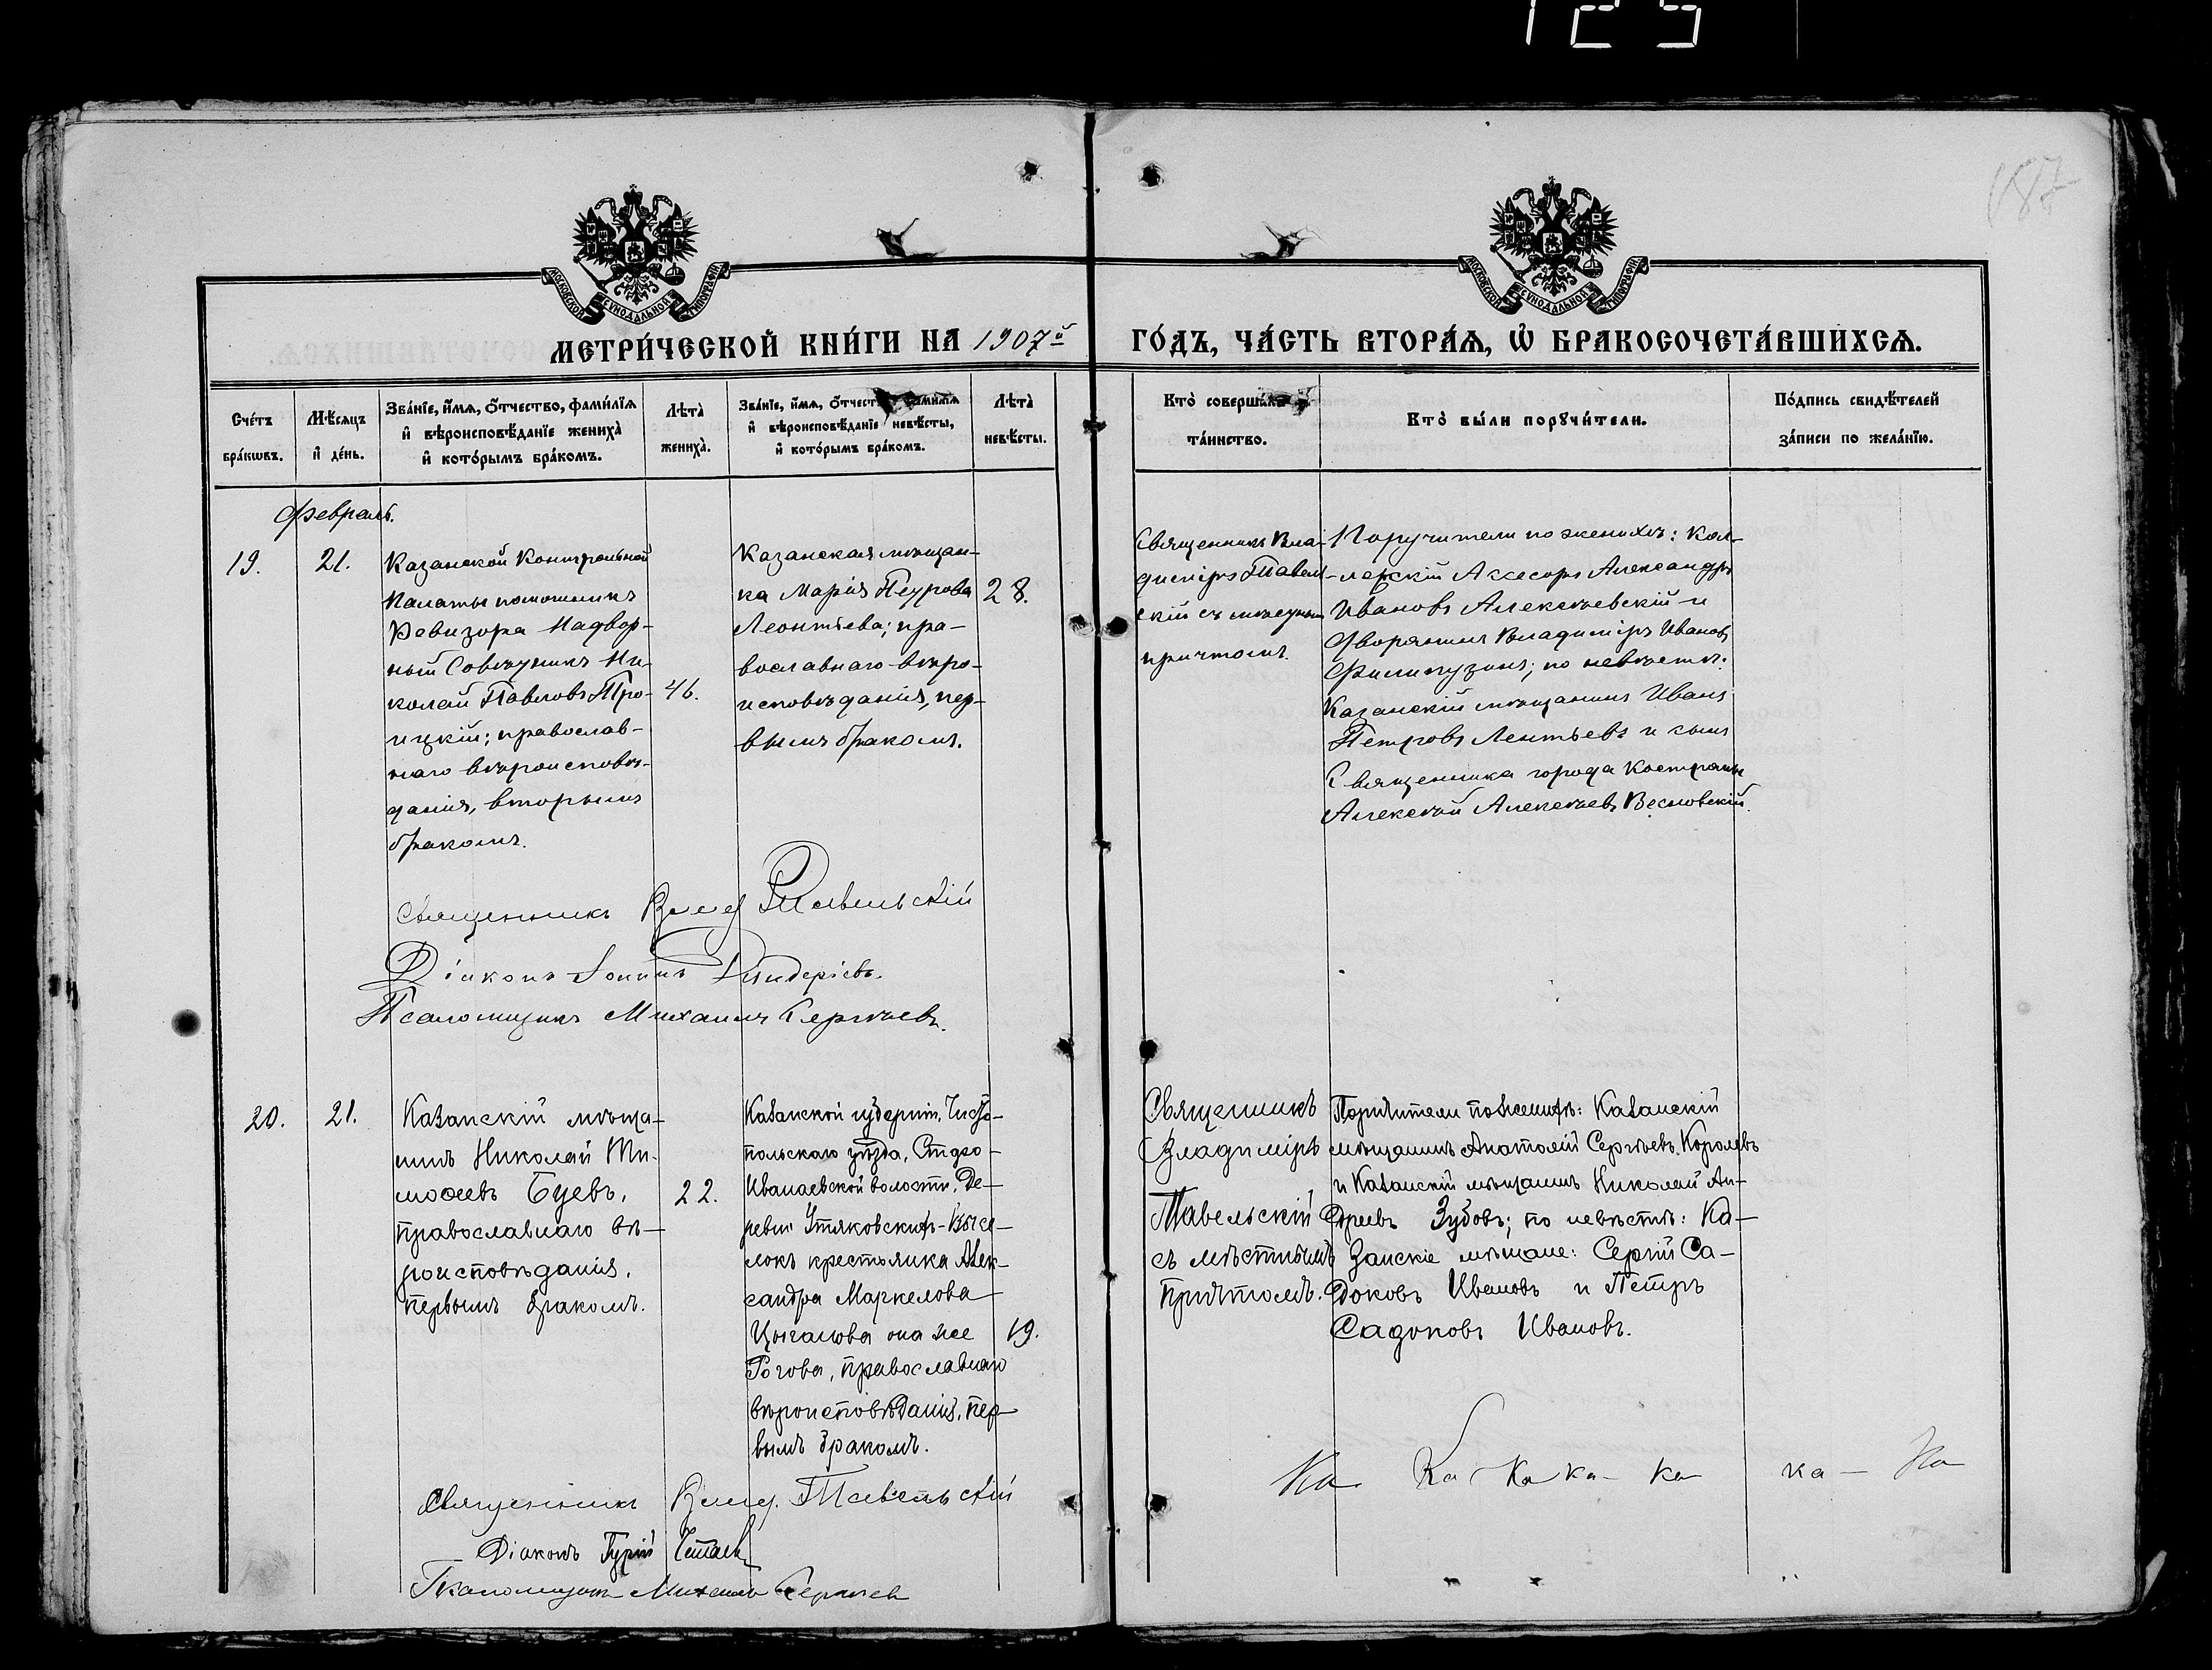 125
187
МОСКОВСКОЙ СѴНОДАЛЬНОЙ ТИПОГРАФІИ
МОСКОВСКОЙ СѴНОДАЛЬНОЙ ТИПОГРАФІИ
МЕТРИ́ЧЕСКОЙ КНИ́ГИ НА 1907й
ГО́ДЪ, ЧА́СТЬ ВТОРА́Ѧ, Ѡ҆ БРАКОСОЧЕТА́ВШИХСѦ.
Сче́тъ
бра́кѡвъ.
Мѣ́сѧцъ
и҆ де́нь.
Зва́нїе, и҆́мѧ, ѻ҆́тчество, фами́лїѧ
и҆ вѣроисповѣ́данїе жениха̀
и҆ кото́рымъ бра́комъ.
Лѣта̀
жениха̀.
Зва́нїе, и҆́мѧ, ѻ҆́тчест фами́лїѧ
и҆ вѣроисповѣ́данїе невѣ́сты,
и҆ кото́рымъ бра́комъ.
Лѣта̀
невѣ́сты.
Кто̀ соверша́лъ
та́инство.
Кто̀ бы́ли порꙋчи́тели.
По́дпись свидѣ́телей
за́писи по жела́нїю.
Февраль.
19.
21.
Казанской Контрольной
Палаты помошникъ
Ревизора Надвор-
ный Совѣтникъ Ни-
колай Павловъ Тро-
ицкій; православ-
наго вѣроисповѣ-
данія, вторымъ
бракомъ.
46.
Казанская мѣщан-
ка Марія Петрова
Леонтьева; пра-
вославнаго вѣро-
исповѣданія, пер-
вымъ бракомъ.
28.
Священникъ Вла-
диміръ Тавель-
скій съ мѣстнымъ
причтомъ.
Поручители по женихѣ: Кол-
лежскій Ассесоръ Александръ
Ивановъ Алексѣевскій и
Дворянинъ Владиміръ Ивановъ
Филипузинъ; по невѣстѣ:
Казанскій мѣщанинъ Иванъ
Петровъ Лентьевъ и сынъ
Священника города Костромы
Алексѣй Алексѣевъ Весновскій.
Священникъ Влад Тавельскій
Діаконъ Іоаннъ
Псаломщикъ Михаилъ Сергѣевъ.
20.
21.
Казанскій мѣща-
нинъ Николай Ти-
моѳеевъ Буевъ,
православнаго вѣ-
роисповѣданія,
первымъ бракомъ.
22.
Казанской губерніи, Чисто-
польскаго уѣзда, Старо-
Иванаевской волости, Де-
ревни Утяковскихъ-Высе-
локъ крестьянка Алек-
сандра Маркелова
Цыганова она же
Рогова, православнаго
вѣроисповѣданія, пер-
вымъ бракомъ.
19.
Священникъ
Владиміръ
Тавельскій
съ мѣстнымъ
причтомъ.
Поручители по женихѣ: Казанскій
мѣщанинъ Анатолій Сергѣевъ Королевъ
и Казанскій мѣщанинъ Николай Ан-
дреевъ Зубовъ; по невѣстѣ: Ка-
занскіе мѣщане: Сергій Са-
доковъ Ивановъ и Петръ
Садоковъ Ивановъ.
Священникъ Влад. Тавельскій
Діаконъ Гурій
Псаломщикъ Михаилъ Сергѣевъ
Ка Ка Ка ка - ка ка - Ка